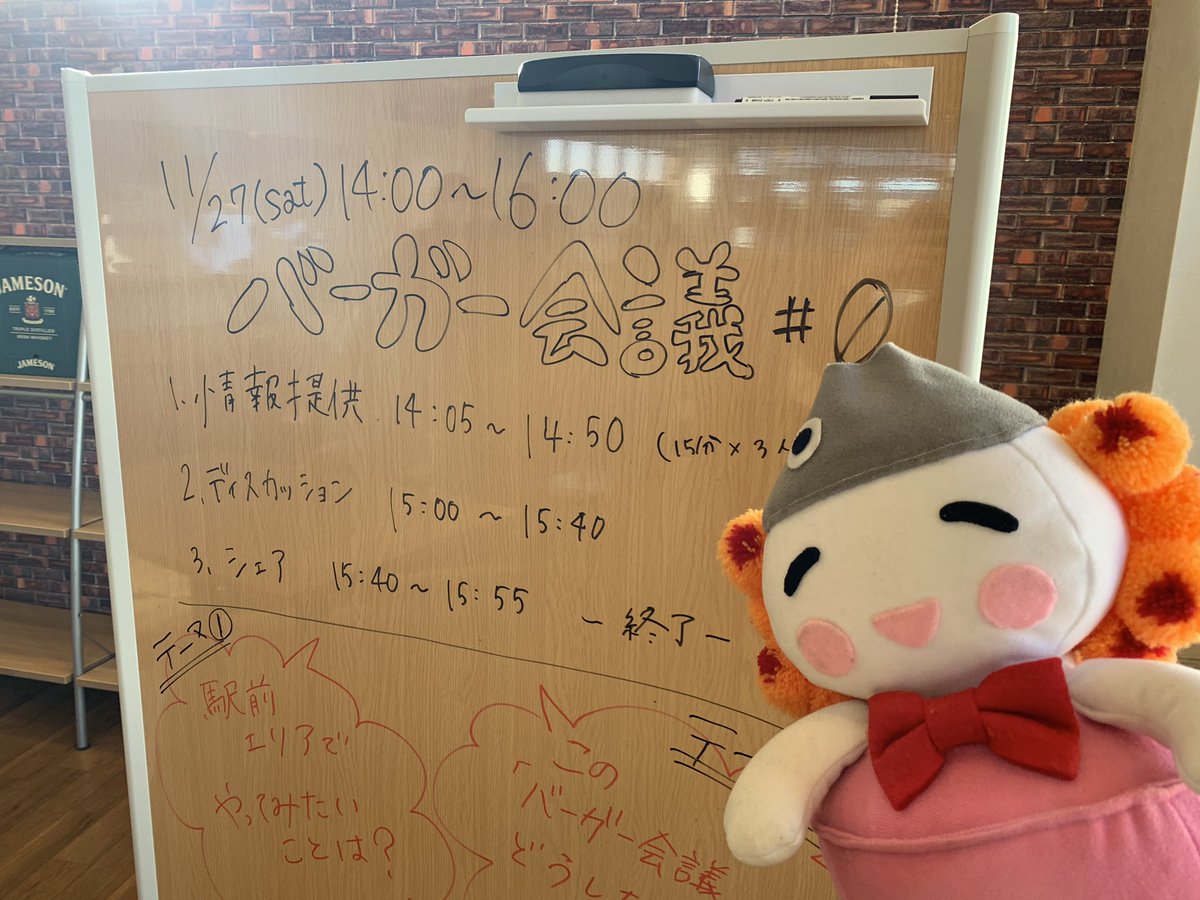 11/27(sat) 14:00～16:00
バーガー会議 #0
1. 情報提供 14:05～14:50 (15分×3人
2. ディスカッション 15:00～15:40
3. シェア 15:40～15:55
ー終了ー
テーマ①
駅前
エリアで
やってみたい
ことは?
テー
この
バーガー会議
どうし
JAMESON
TRIPLE DISTILLED
IRISH WHISKEY
JAMESON